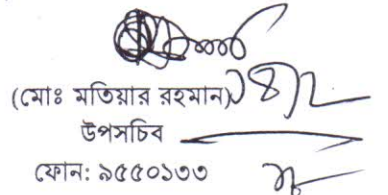 (মোঃ মতিয়ার রহমান)
উপসচিব
ফোন: ৯৫৫০১৩৩